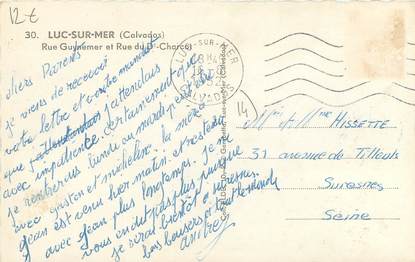 12€
30. LUC-SUR-MER (Calvados)
Rue Guynemer et Rue du Dr Charcot
LUC-SUR-MER
CALVADOS
14
chers Parents
je viens de recevoir
votre lettre et votre mandat
que j'attendais
avec impatience certainement que
je rentrerais lundi ou mardi peut être
avec gaston et micheline. la mère
jean est venu hier matin et restera
avec jean plus longtemps. je ne
vous en dit pas plus parce que
je serai bientôt à suresnes.
bons baisers à tout le monde
andrée
Mr et Mme HISSETTE
31 avenue de Tilleuls
Suresnes
Seine